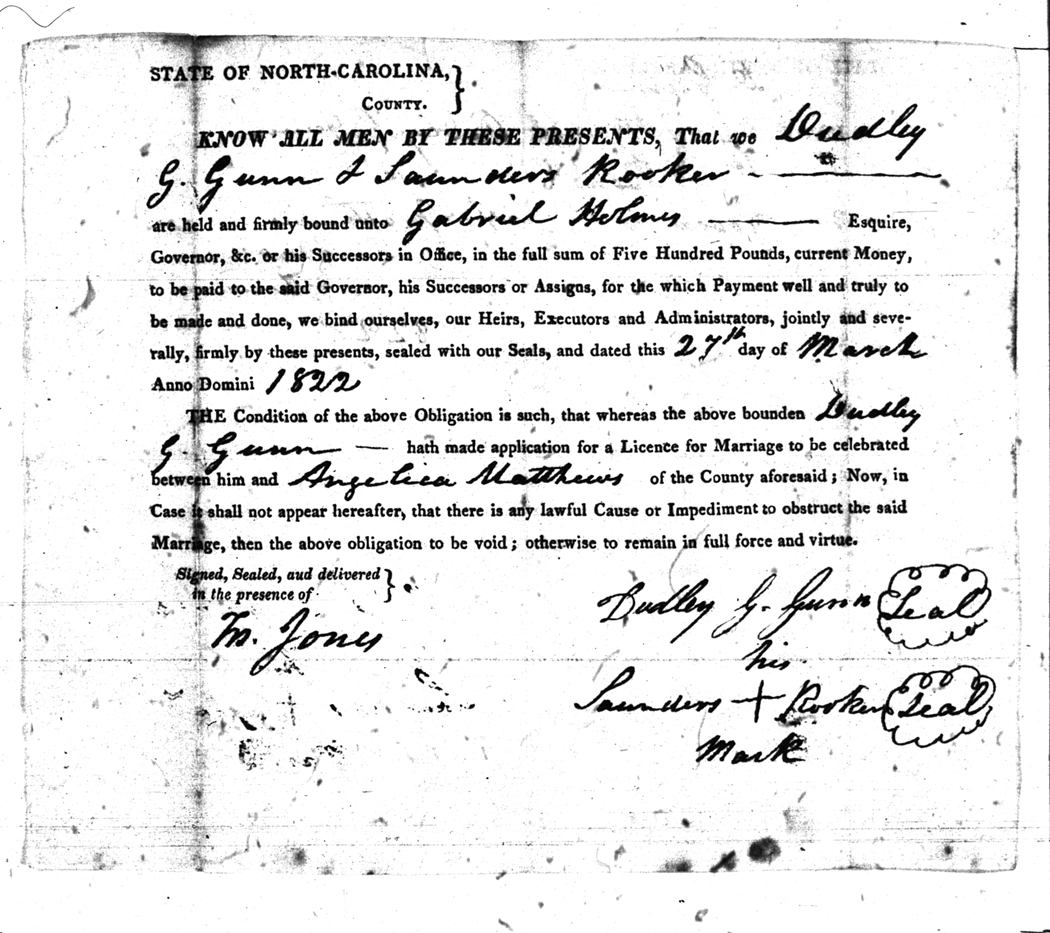 STATE OF NORTH-CAROLINA, }
COUNTY.
KNOW ALL MEN BY THESE PRESENTS, That we Dudley
G. Gunn & Saunders Rooker
are held and firmly bound unto Gabriel Holmes Esquire,
Governor, &c. or his Successors in Office, in the full sum of Five Hundred Pounds, current Money,
to be paid to the said Governor, his Successors or Assigns, for the which Payment well and truly to
be made and done, we bind ourselves, our Heirs, Executors and Administrators, jointly and seve-
rally, firmly by these presents, sealed with our Seals, and dated this 27th day of March
Anno Domini 1822
THE Condition of the above Obligation is such, that whereas the above bounden Dudley
G. Gunn — hath made application for a Licence for Marriage to be celebrated
between him and Angelica Matthews of the County aforesaid; Now, in
Case it shall not appear hereafter, that there is any lawful Cause or Impediment to obstruct the said
Marriage, then the above obligation to be void; otherwise to remain in full force and virtue.
Signed, Sealed, aud delivered }
in the presence of
Dudley G. Gunn Seal
Jones
his
Saunders + Rooker Seal
Mark